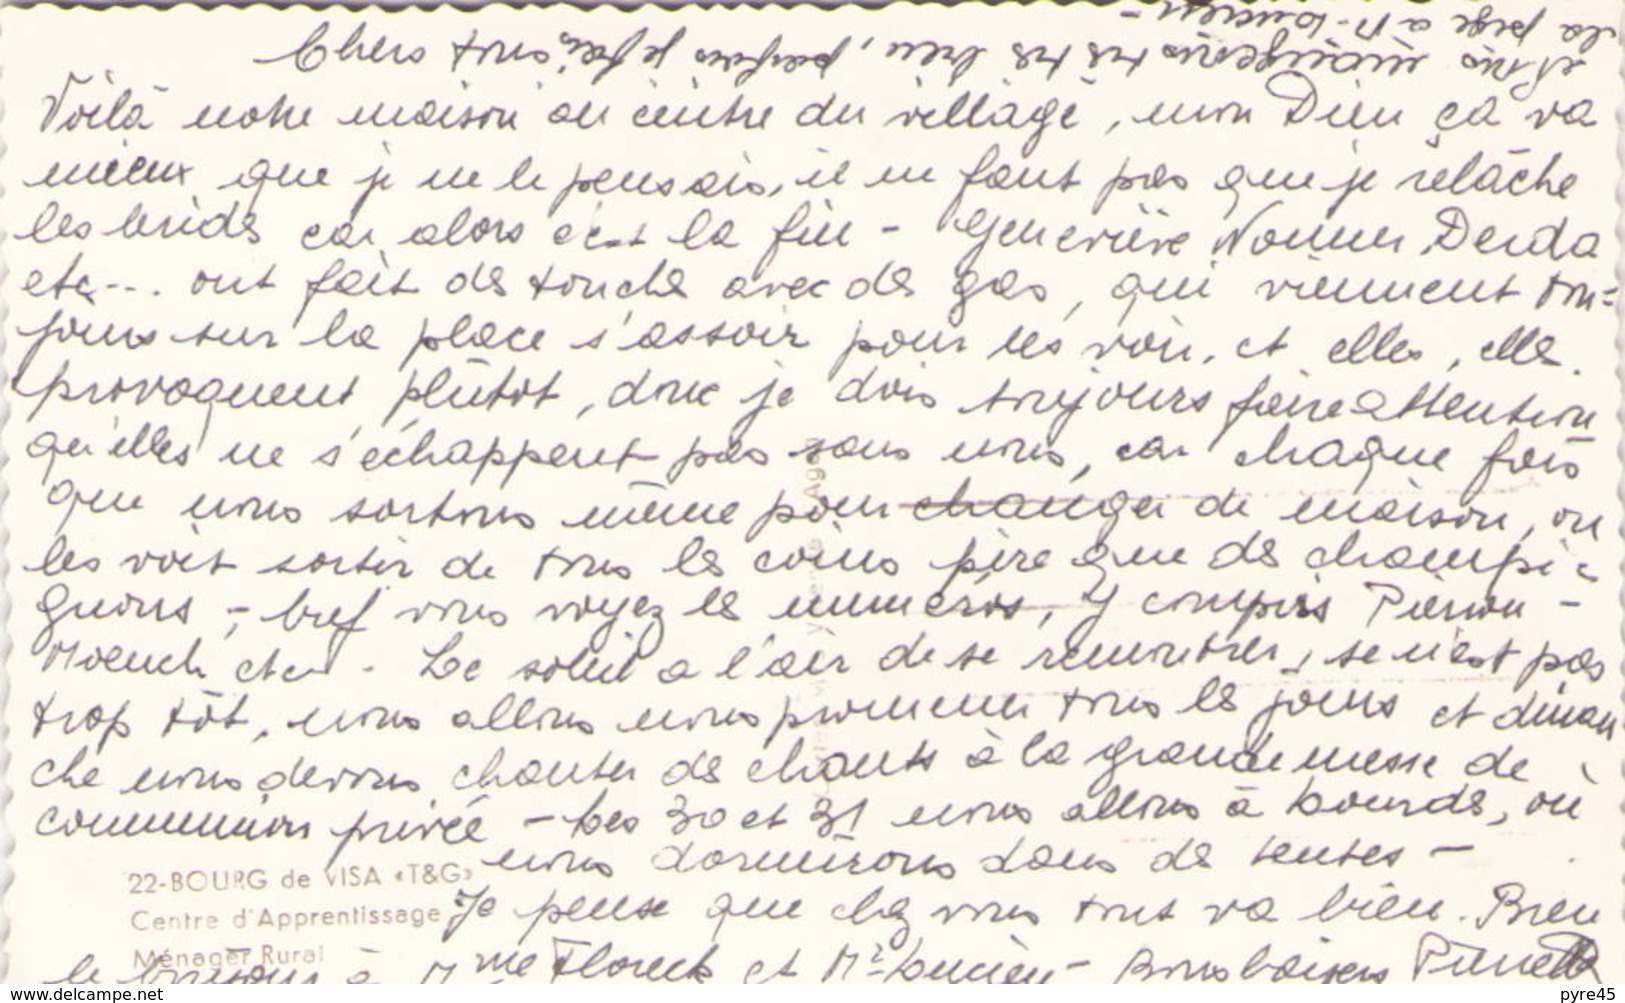 Chers tous
Voilà notre maison au centre du village, mon Dieu ça va
mieux que je ne le pensais, il ne faut pas que je relâche
les brides car alors c'est la fin - Geneviève Derda
etc... ont fait des touches avec des gas, qui viennent tou=
jours sur la place s'assoir pour les voir, et elles, elles
provoquent plutôt, donc je dois toujours faire attention
qu'elles ne s'échappent pas sans nous, car chaque fois
que nous sortons même pour changer de maison, on
les voit sortir de tous les coins pire que des champi-
gnons, - bref vous voyez les numéros, y compris
etc... Le soleil a l'air de se remontrer, se n'est pas
trop tôt, nous allons nous promener tous les jours et diman
che nous devons chanter des chants à la grande messe de
communion privée - Les 30 et 31 nous allons à Lourdes, où
nous dormirons dans des tentes -
Je pense que chez vous tout va bien. Bien
le bonjour à Mme Floreck et Mr Lucien - Bons baisers Pierrette
et nous mangeons très très bien, parfois je fais
la page à
22-BOURG de VISA «T&G»
Centre d'Apprentissage
Ménager Rural
www.delcampe.net
pyre45